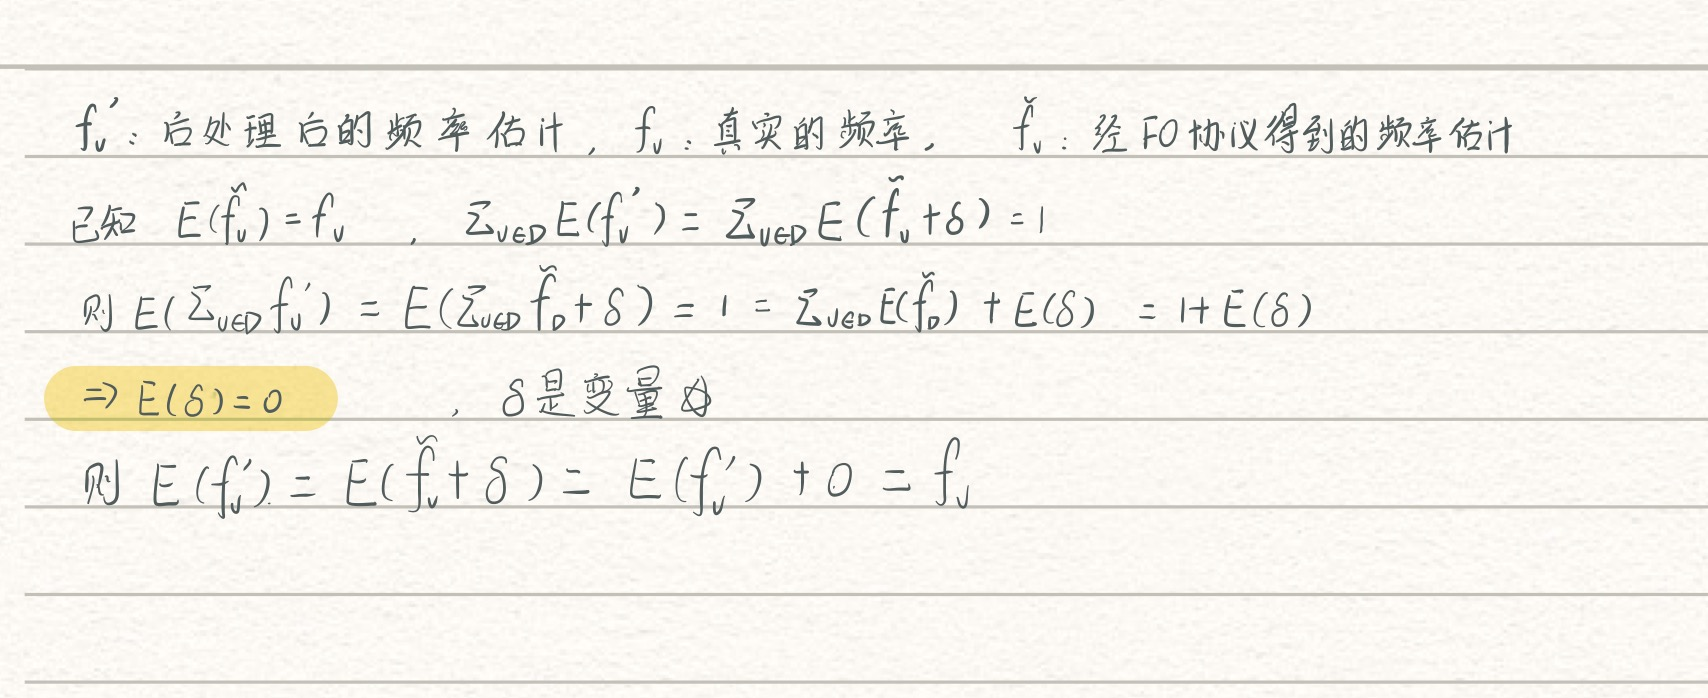 f_v′：后处理后的频率估计，f_v：真实的频率，f̃_v：经FO协议得到的频率估计
已知 E(f̃_v)=f_v ，Σ_{v∈D}E(f_v′)=Σ_{v∈D}E(f̃_v+δ)=1
则 E(Σ_{v∈D}f_v′)=E(Σ_{v∈D}f̃_D+δ)=1=Σ_{v∈D}E(f̃_D)+E(δ)=1+E(δ)
⇒E(δ)=0 ，δ是变量
则 E(f_v′)=E(f̃_v+δ)=E(f_v′)+0=f_v